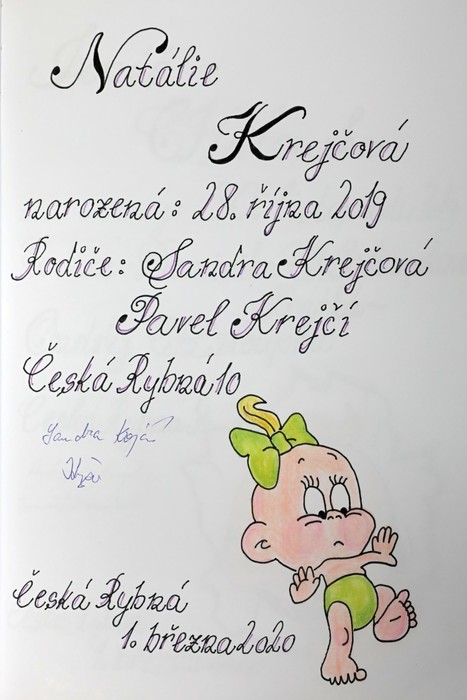 Natálie
Krejčová
narozená: 28. října 2019
Rodiče: Sandra Krejčová
Pavel Krejčí
Česká Rybná 10
Sandra
Česká Rybná
1. března 2020